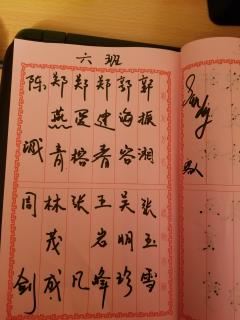 六班
郭振湘
郭海容
郑建
郑榕
郑燕青
陈
张玉雪
吴明珍
王岩峰
张凡
林茂盛
周剑